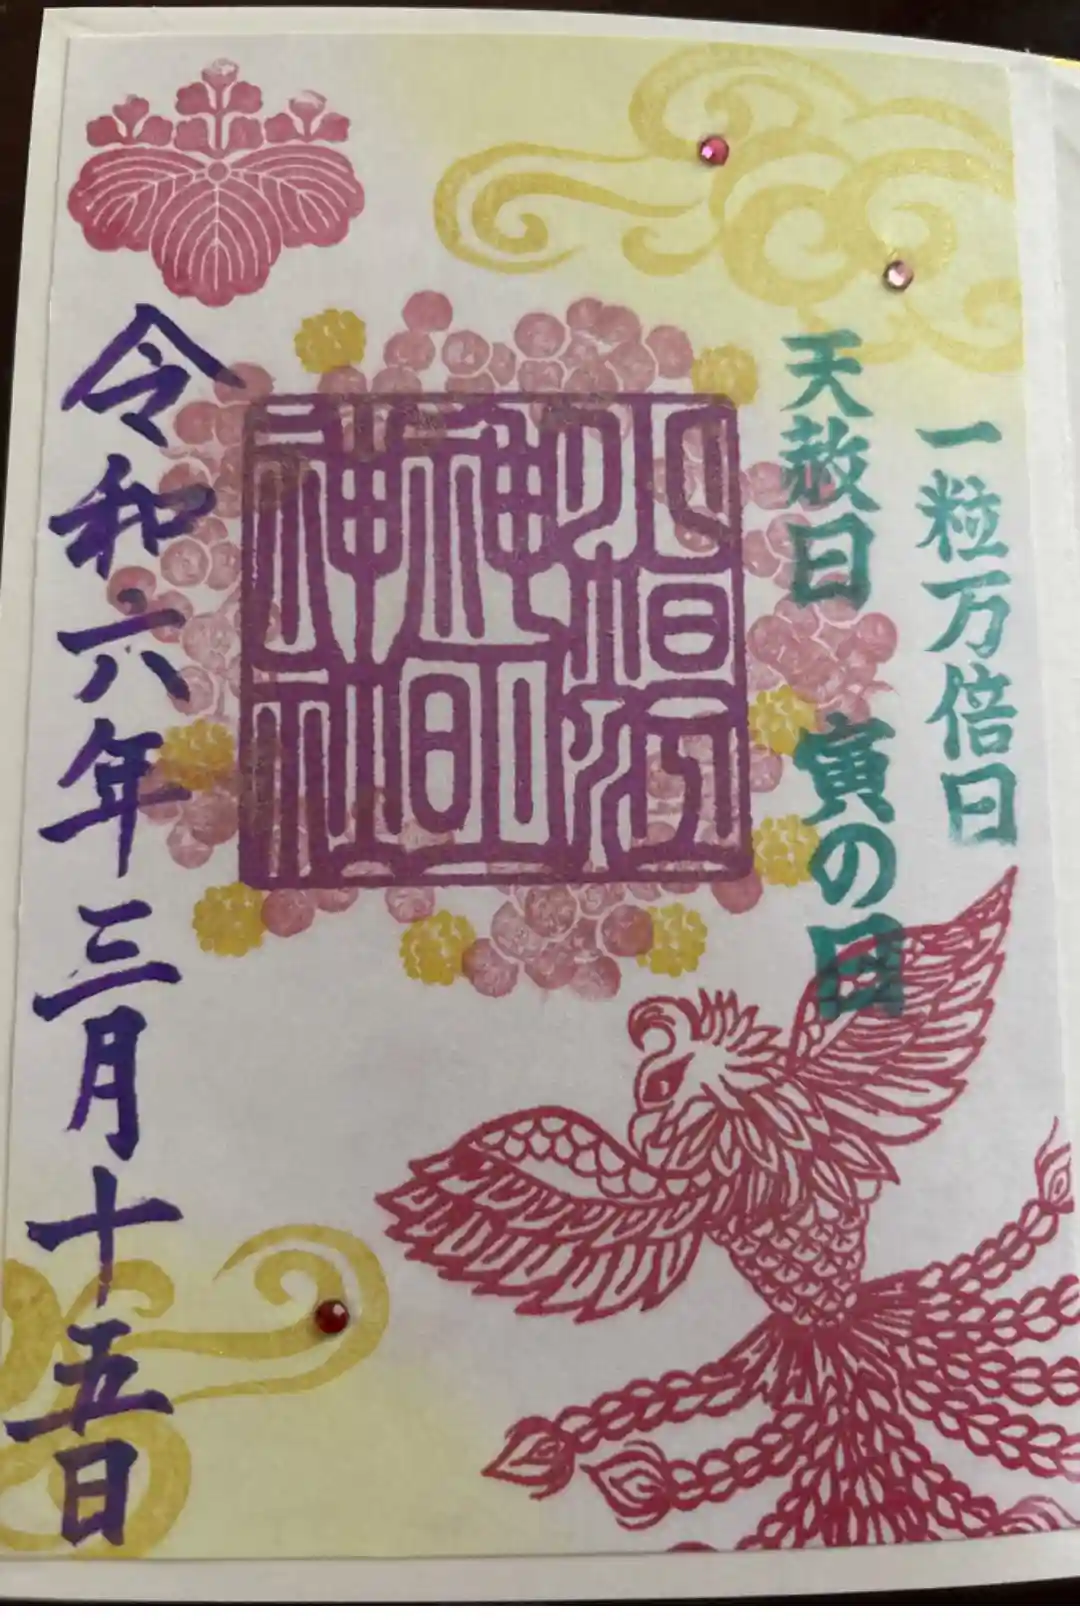 一粒万倍日
天赦日 寅の日
令和六年三月十五日